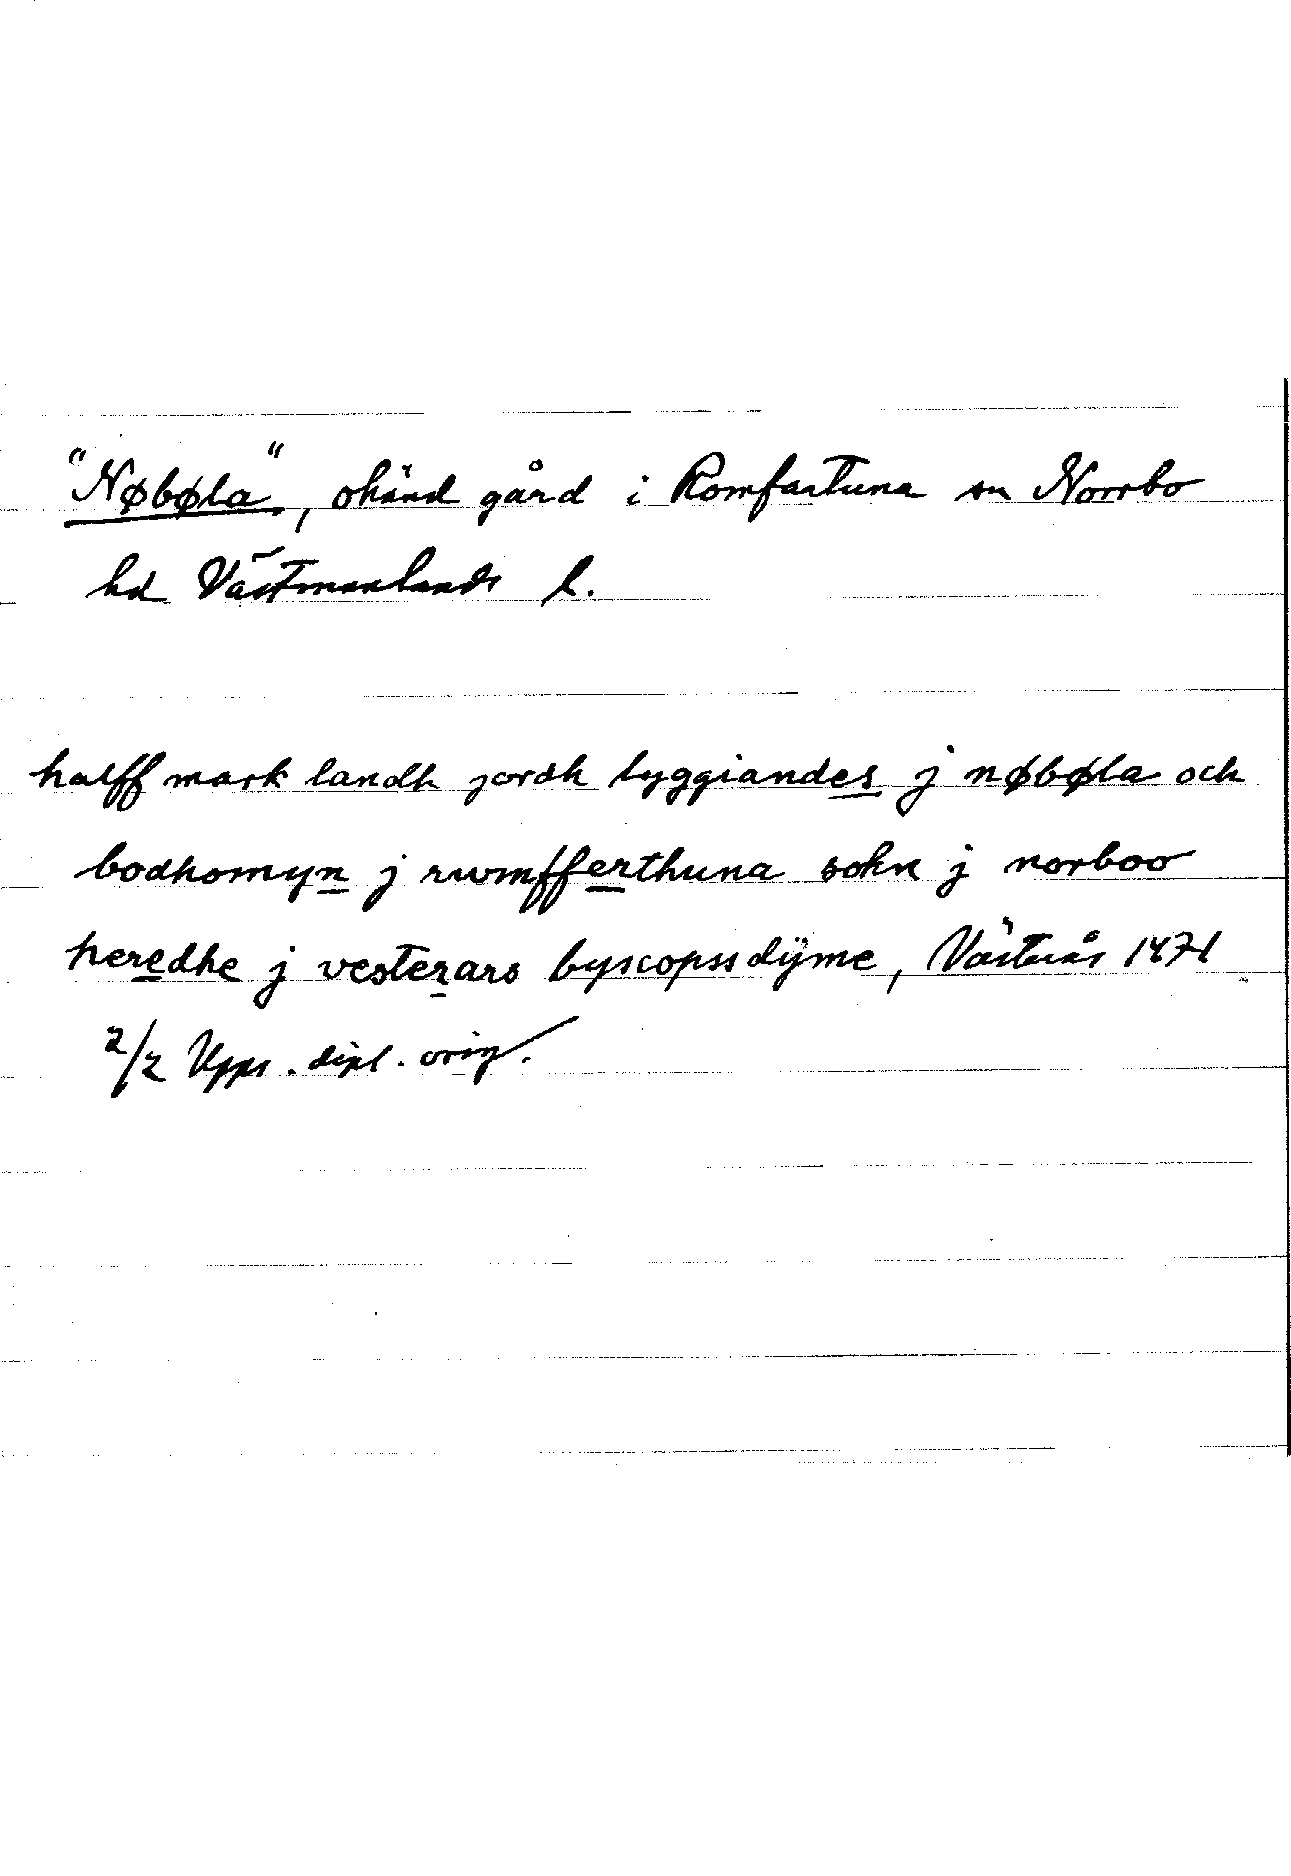 "Nøbøla", okänd gård i Romfartuna sn Norrbo
hd Västmanlands l.
halff mark landh jordh lyggiandes j nøbøla och
bodhomyn j rwmfferthuna sokn j norboo
heredhe j vesterars byscopssdÿme, Västerås 1471
2/2 Upps. dipl. orig.